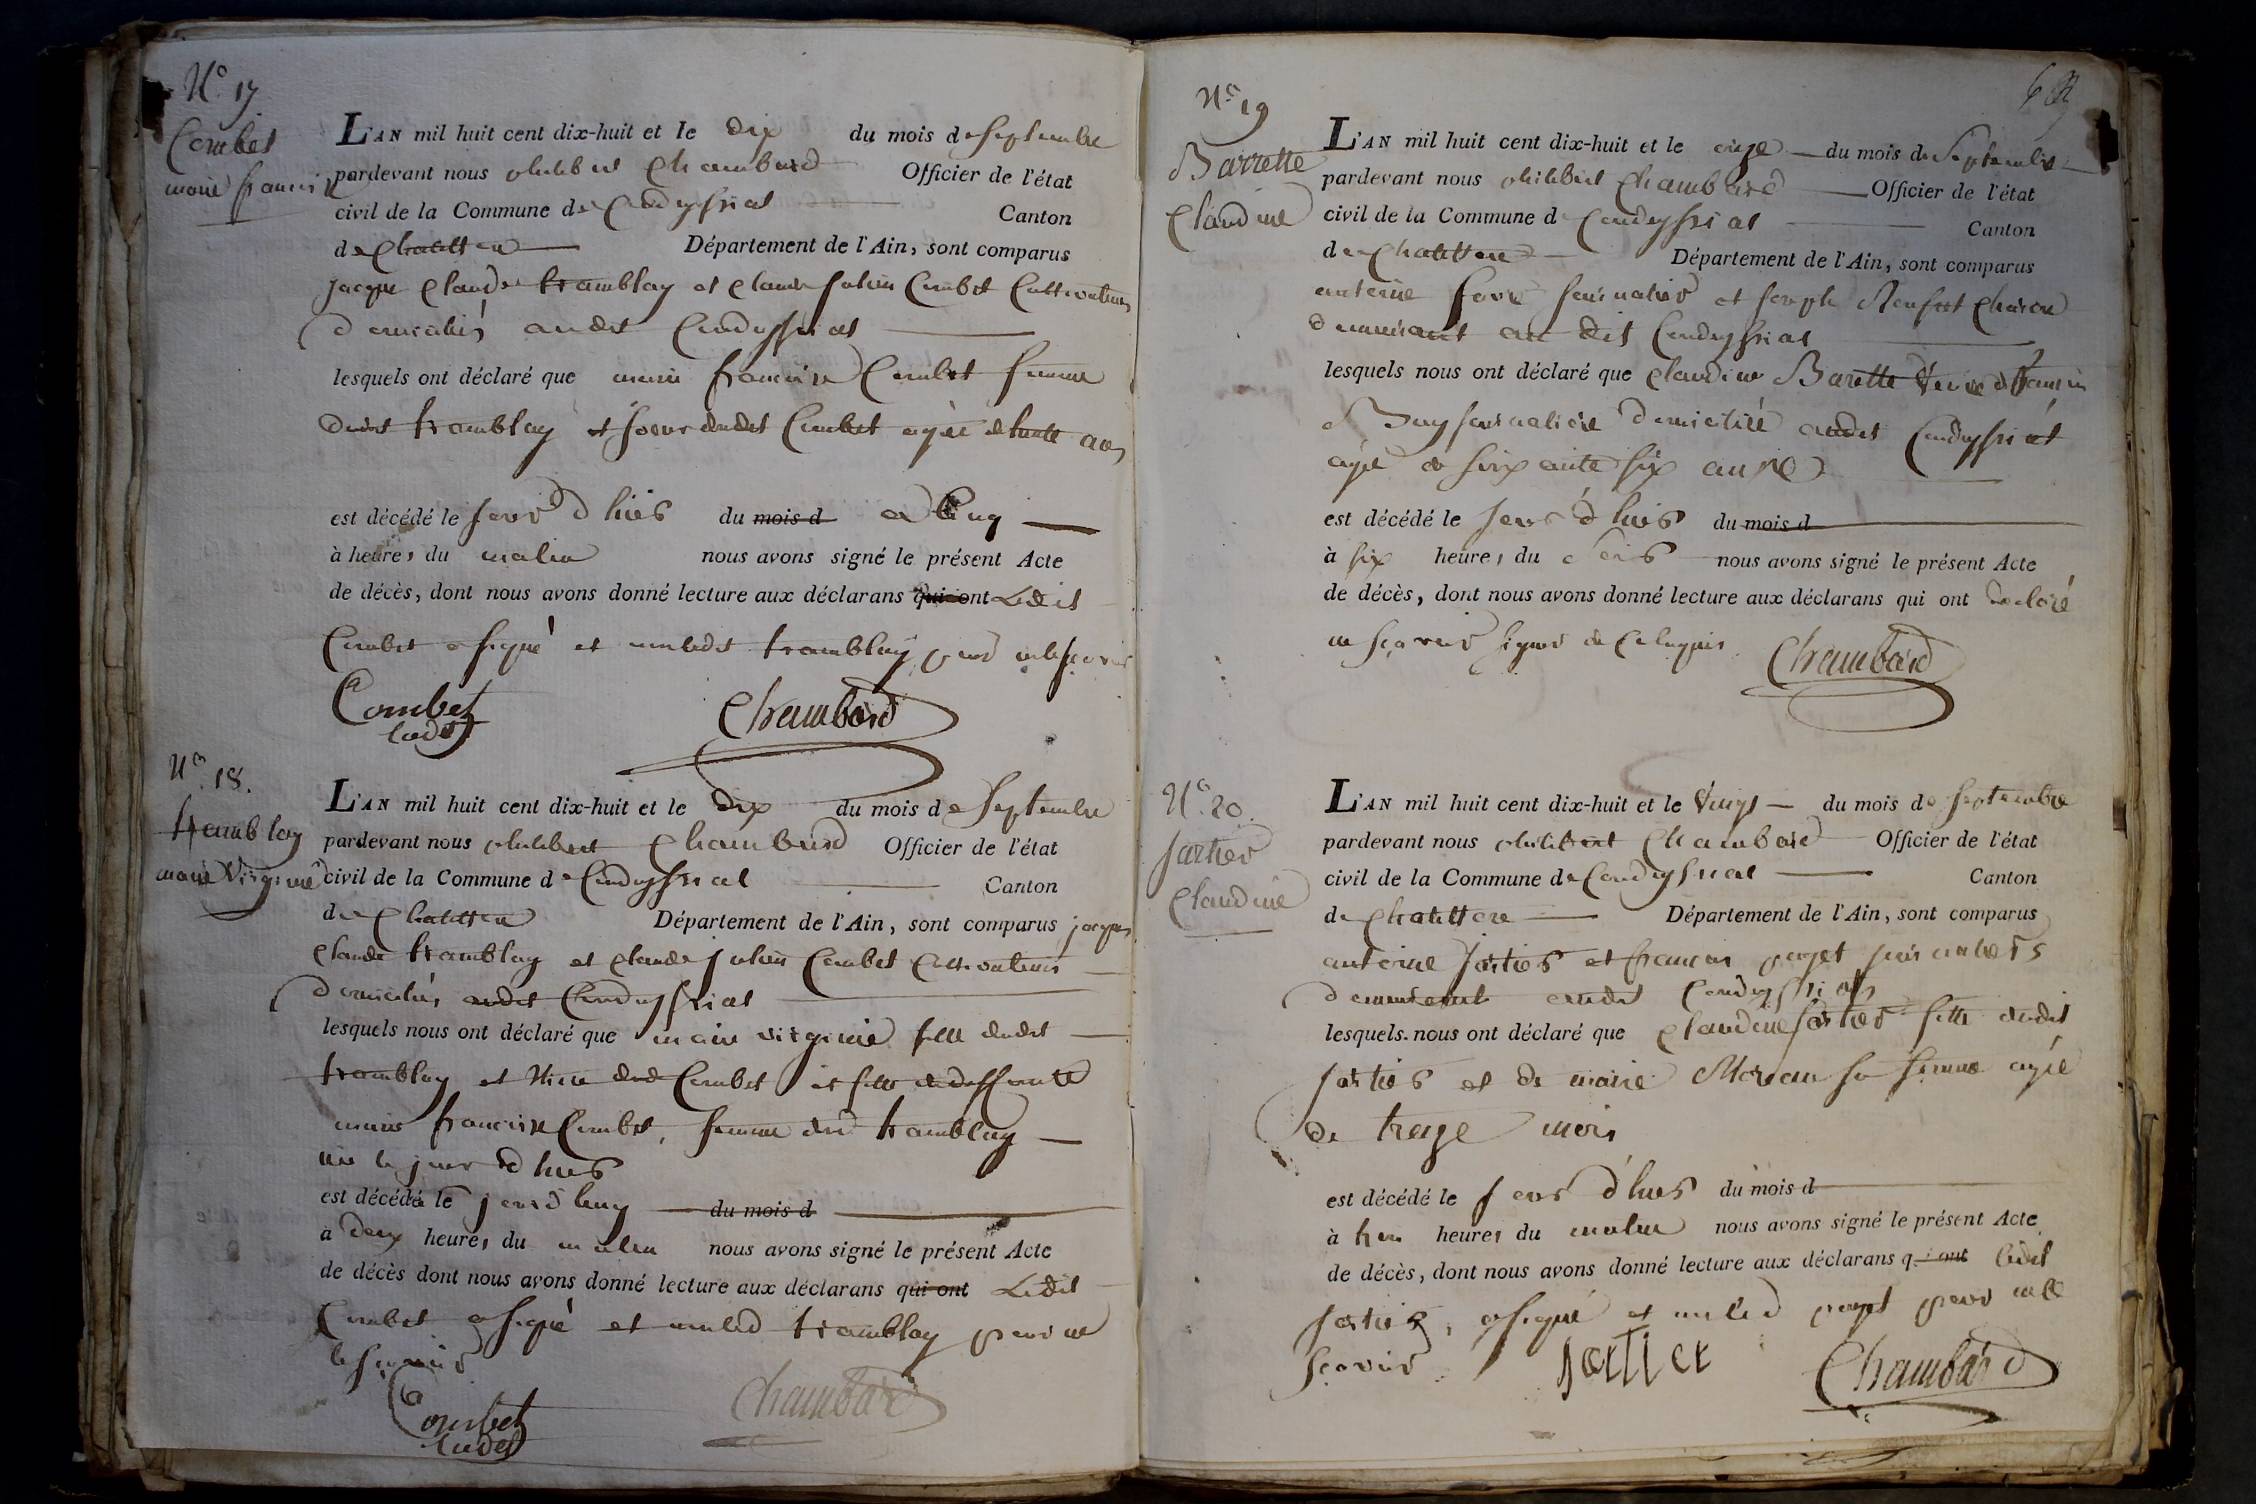 N.o 17
Combet
marie francoise
L'AN mil huit cent dix-huit et le dix du mois de Septembre
pardevant nous philibert Chambard Officier de l'état
civil de la Commune de Condeyssiat Canton
de Chatillon Département de l'Ain, sont comparus
jacque Claude tramblay et Claude julien Combet Cultivateurs
domiciliés audit Condeyssiat
lesquels ont déclaré que marie francoise Combet femme
dudit tramblay et soeur dudit Combet agée de trente ans
est décédé le jour d'hier du mois d
à heures du matin nous avons signé le présent Acte
de décès, dont nous avons donné lecture aux déclarans qui ont Ledit
Combet a signé et non ledit tramblay pour ne le scavoir
Combet
cadet
Chambard
N.o 18.
tramblay
marie Virginie
L'AN mil huit cent dix-huit et le dix du mois de Septembre
pardevant nous philibert Chambard Officier de l'état
civil de la Commune de Condeyssiat Canton
de Chatillon Département de l'Ain, sont comparus jacques
Claude tramblay et Claude julien Combet Cultivateurs
domiciliés audit Condeyssiat
lesquels nous ont déclaré que marie virginie fille dudit
tramblay et Niece dud Combet et fille de deffunte
marie francoise Combet, femme dud tramblay
née le jour d'hier
est décédée le jourd'huy du mois d
à deux heures du matin nous avons signé le présent Acte
de décès dont nous avons donné lecture aux déclarans qui ont Ledit
Combet a signé et non led tramblay pour ne
le scavoir
Combet
cadet
Chambard
69
N.o 19
Barrette
Claudine
L'AN mil huit cent dix-huit et le onze du mois de Septembre
pardevant nous philibert Chambard Officier de l'état
civil de la Commune de Condeyssiat Canton
de Chatillon Département de l'Ain, sont comparus
antoine journalier et joseph Charon
demeurant au dit Condeyssiat
lesquels nous ont déclaré que Claudine Barette Veuve de
journaliere domiciliée audit Condeyssiat
agée de soixante six année
est décédé le jour d'hier du mois d
à six heures du soir nous avons signé le présent Acte
de décès, dont nous avons donné lecture aux déclarans qui ont déclaré
ne scavoir signer de ce enquis
Chambard
N.o 20.
jartier
Claudine
L'AN mil huit cent dix-huit et le vingt du mois de septembre
pardevant nous philibert Chambard Officier de l'état
civil de la Commune de Condeyssiat Canton
de Chatillon Département de l'Ain, sont comparus
antoine jartier et francois poget journaliers
demeurant audit Condeyssiat
lesquels nous ont déclaré que Claudine jartier fille dudit
jartier et de marie Moreau sa femme agée
de treize mois
est décédé le jour d'hier du mois d
à heures du matin nous avons signé le présent Acte
de décès, dont nous avons donné lecture aux déclarans qui ont ledit
jartier, a signé et non led poget pour ne le
scavoir
jartier
Chambard